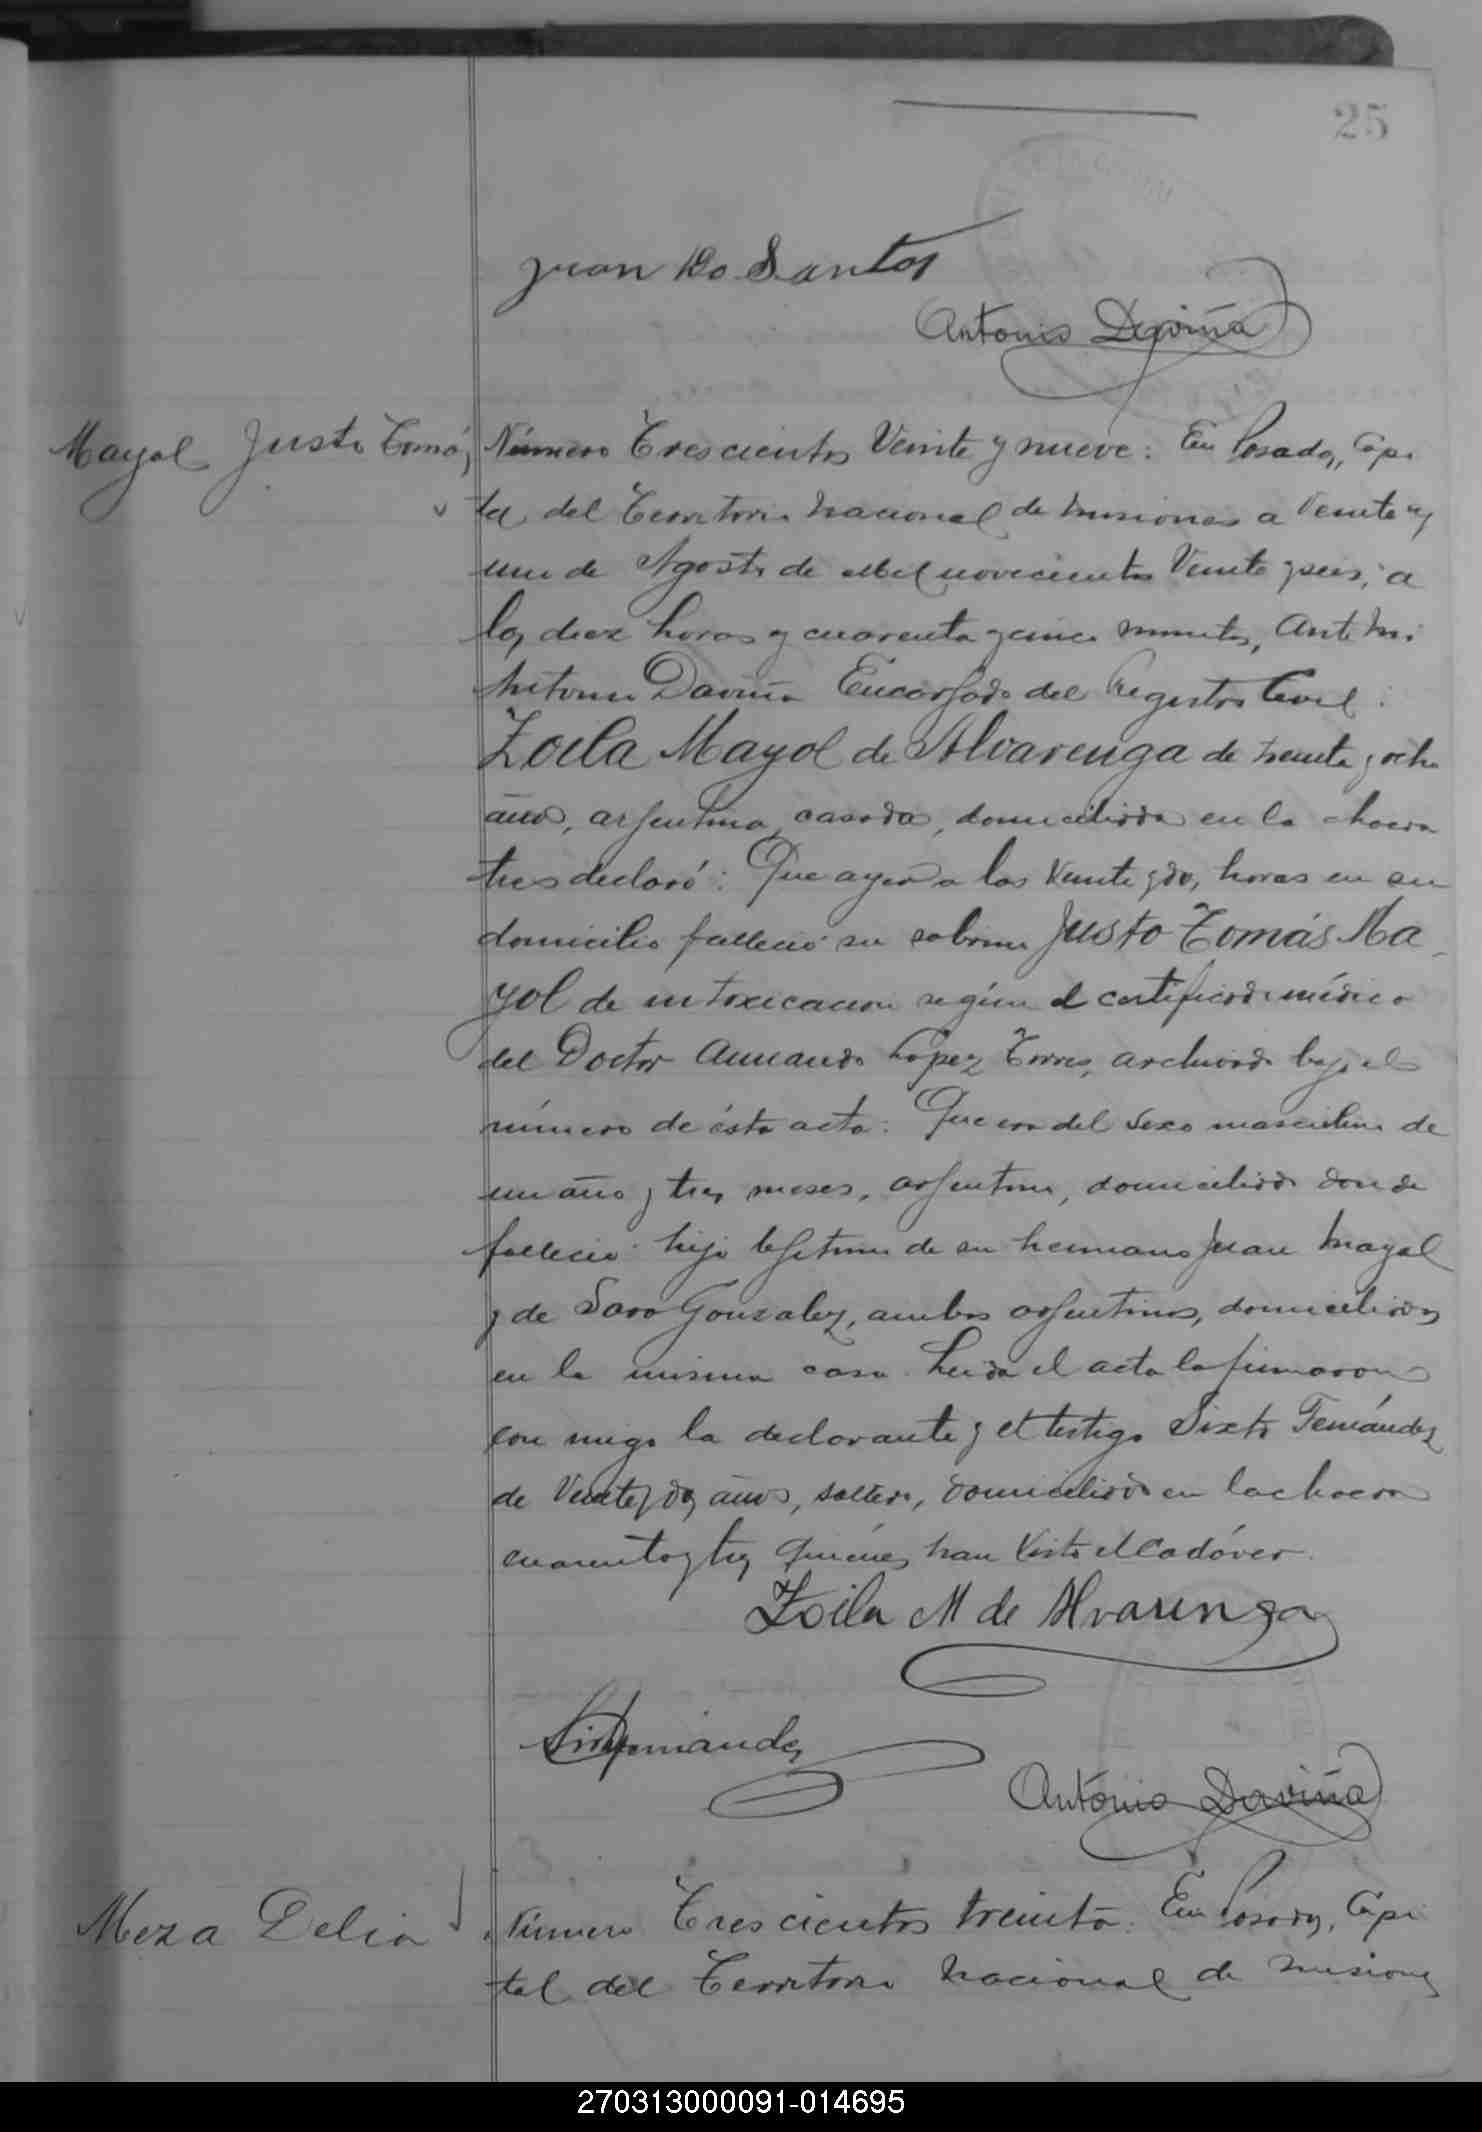 25
Juan Do Santos
Antonio Daviña
Mayol Justo Tomás
Número Trescientos Veinte y nueve: En Posadas, Capi
tal del Territorio Nacional de Misiones a Veinte y
uno de Agosto de mil novecientos Veinte y seis, a
las diez horas y cuarenta y cinco minutos, Ante mi
Antonio Daviña Encargado del Registro Civil:
Zoila Mayol de Alvarenga de treinta y ocho
años, argentina, casada, domiciliada en la chacra
tres declaró: Que ayer a las Veinte y dos horas en su
domicilio falleció su sobrino Justo Tomás Ma
yol de intoxicacion según el certificado médico
del Doctor Armando Lopez Torres, archivado bajo el
número de ésta acta: Que era del sexo masculino de
un año y tres meses, argentino, domiciliado donde
falleció: hijo legitimo de su hermano Juan Mayol
y de Sara Gonzalez, ambos argentinos, domiciliados
en la misma casa. Leida el acta la firmaron
con migo la declarante y el testigo Sixto Fernández
de Veinte y dos años, soltero, domiciliado en la chacra
cuarenta y tres quienes han Visto el Cadáver.
Zoila M de Alvarenga
Antonio Daviña
Meza Delia
Número Trescientos treinta: En Posadas, Capi
tal del Territorio Nacional de Misiones
270313000091-014695